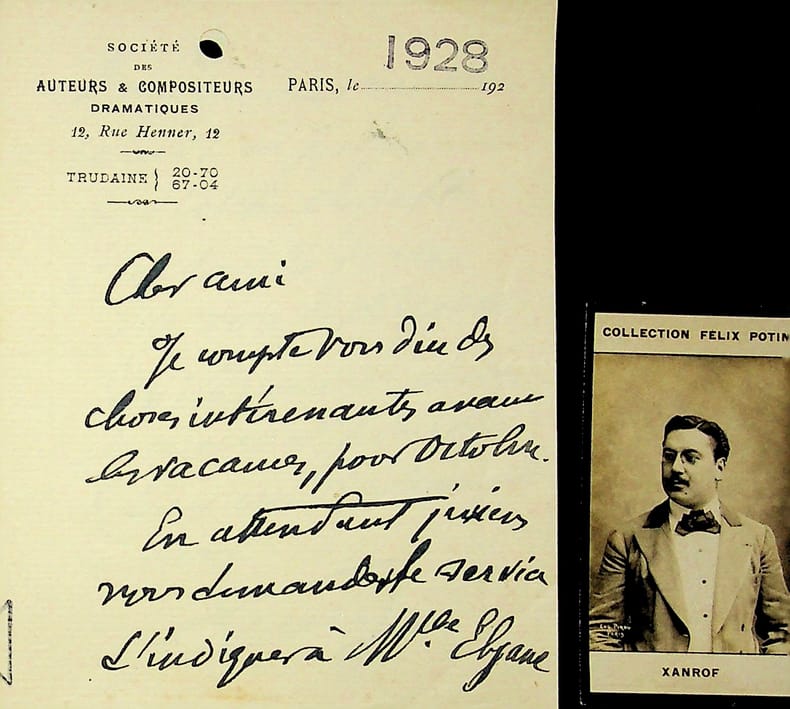 SOCIÉTÉ
DES
AUTEURS & COMPOSITEURS
DRAMATIQUES
12, Rue Henner, 12
TRUDAINE } 20-70
67-04
1928
PARIS, le 192
Cher ami
Je compte vous dire des
choses intéressantes avant
les vacances, pour Octobre.
En attendant je viens
vous demander le service
d'indiquer à Mlle
COLLECTION FÉLIX POTIN
PARIS
XANROF